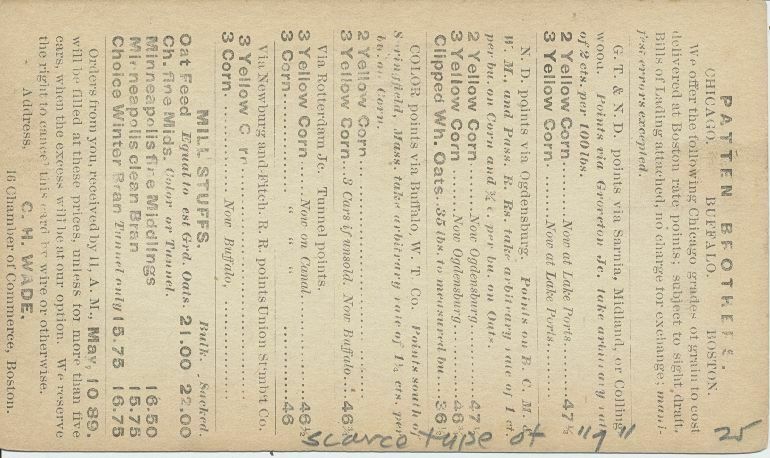 PATTEN BROTHERS.
CHICAGO. BUFFALO. BOSTON.
We offer the following Chicago grades of grain to cost
delivered at Boston rate points; subject to sight draft,
Bills of Lading attached, no charge for exchange; mani-
fest errors excepted.
G. T. & N. D. points via Sarnia, Midland, or Colling-
wood. Points via Groveton Jc. take arbitrary rate
of 2 cts. per 100 lbs.
2 Yellow Corn......Now at Lake Ports......47½
3 Yellow Corn......Now at Lake Ports......
N. D. points via Ogdensburg. Points on B. C. M. &
W. M., and Pass. R. Rs. take arbitrary rate of 1 ct.
per bu. on Corn and ¾ c per bu. on Oats.
2 Yellow Corn......Now Ogdensburg......47½
3 Yellow Corn......Now Ogdensburg......46½
Clipped Wh. Oats..35 lbs. to measured bu...36½
COLOR points via Buffalo, W. T. Co. Points south of
Springfield, Mass., take arbitrary rate of 1¾ cts. per
bu. on Corn.
2 Yellow Corn......
3 Yellow Corn...3 Cars if unsold. Now Buffalo...46½
Via Rotterdam Jc. Tunnel points.
3 Yellow Corn......Now on Canal......46½
3 Corn...... " " ......46
Via Newburg and Fitch. R. R. points Union Stmbt Co.
3 Yellow Corn......
3 Corn......Now Buffalo,......
MILL STUFFS. Bulk. Sacked.
Oat Feed Equal to est Grd. Oats. 21.00 22.00
Ch. fine Mids. Color or Tunnel.
Minneapolis fine Middlings 16.50
Minneapolis clean Bran 15.75
Choice Winter Bran Tunnel only 15.75 16.75
Orders from you, received by 11, A. M., May, 10 89.
will be filled at these prices, unless for more than five
cars, when the excess will be at our option. We reserve
the right to cancel this card by wire or otherwise.
Address, C. H. WADE.
16 Chamber of Commerce, Boston.
25
scarce type of "1"